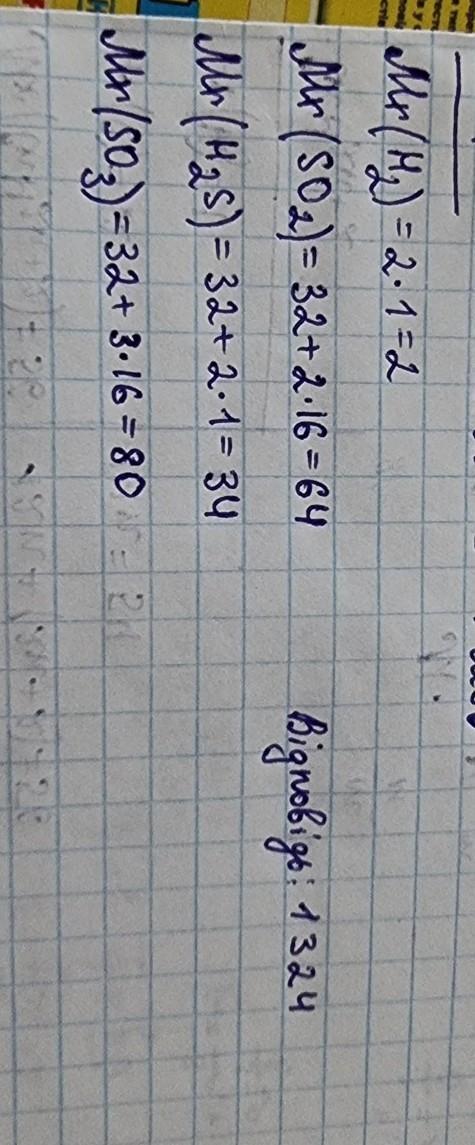 Mr(H₂) = 2·1 = 2
Mr(SO₂) = 32 + 2·16 = 64
Mr(H₂S) = 32 + 2·1 = 34
Mr(SO₃) = 32 + 3·16 = 80
Відповідь: 1324